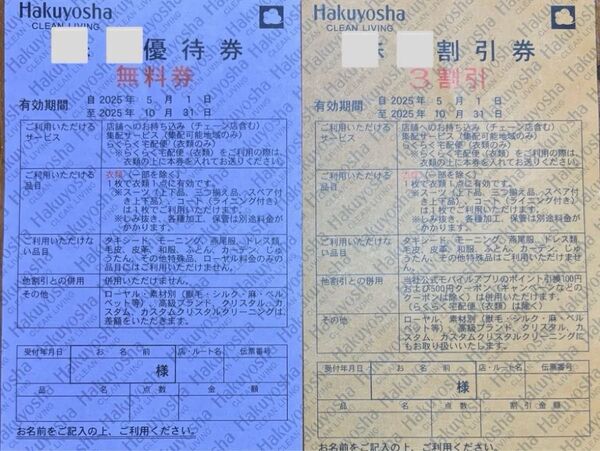 Hakuyosha
CLEAN LIVING
優待券
無料券
有効期間
自 2025年 5月 1日
至 2025年 10月 31日
ご利用いただける
サービス
店舗へのお持ち込み(チェーン店含む)
集配サービス(集配可能地域のみ)
らくらく宅配便(衣類のみ)
※らくらく宅配便(衣類)をご利用の際は、
衣類の上に本券を入れてお送りください。
ご利用いただける
品目
衣類(一部を除く)
1枚で衣類1点に有効です。
※スーツ(上下品、三つ揃え品、スペア付
き上下品)、コート(ライニング付き)
は1枚でご利用いただけます。
※しみ抜き、各種加工、保管は別途料金が
かかります。
ご利用いただけな
い品目
タキシード、モーニング、燕尾服、ドレス類、
毛皮、皮革、和服、ふとん、カーテン、じゅ
うたん、その他特殊品、ローヤル料金のみ
の品目にはご利用いただけません。
他割引との併用
併用いただけません。
その他
ローヤル・素材別(獣毛・シルク・麻・ベル
ベット等)、高級ブランド、クリスタル、カ
スタム、カスタムクリスタルクリーニングは
差額をいただきます。
受付年月日
お名前
店・ルート名
伝票番号
様
品名
点数
金額
お名前をご記入の上、ご利用ください。
Hakuyosha
CLEAN LIVING
割引券
3割引
有効期間
自 2025年 5月 1日
至 2025年 10月 31日
ご利用いただける
サービス
店舗へのお持ち込み(チェーン店含む)
集配サービス(集配可能地域のみ)
らくらく宅配便(衣類のみ)
※らくらく宅配便(衣類)をご利用の際は、
衣類の上に本券を入れてお送りください。
ご利用いただける
品目
衣類(一部を除く)
1枚で衣類1点に有効です。
※スーツ(上下品、三つ揃え品、スペア付
き上下品)、コート(ライニング付き)
は1枚でご利用いただけます。
※しみ抜き、各種加工、保管は別途料金が
かかります。
ご利用いただけな
い品目
タキシード、モーニング、燕尾服、ドレス類、
毛皮、皮革、和服、ふとん、カーテン、じゅ
うたん、その他特殊品にはご利用いただけ
ません。
他割引との併用
当社公式モバイルアプリのポイント引換100円
および500円クーポン(キャンペーンなどの
クーポンは除く)は併用いただけます。
(らくらく宅配便は除く)
その他
ローヤル、素材別(獣毛・シルク・麻・ベル
ベット等)、高級ブランド、クリスタル、カ
スタム、カスタムクリスタルクリーニングに
もお取り扱いいたします。
受付年月日
お名前
店・ルート名
伝票番号
様
品名
点数
割引金額
お名前をご記入の上、ご利用ください。